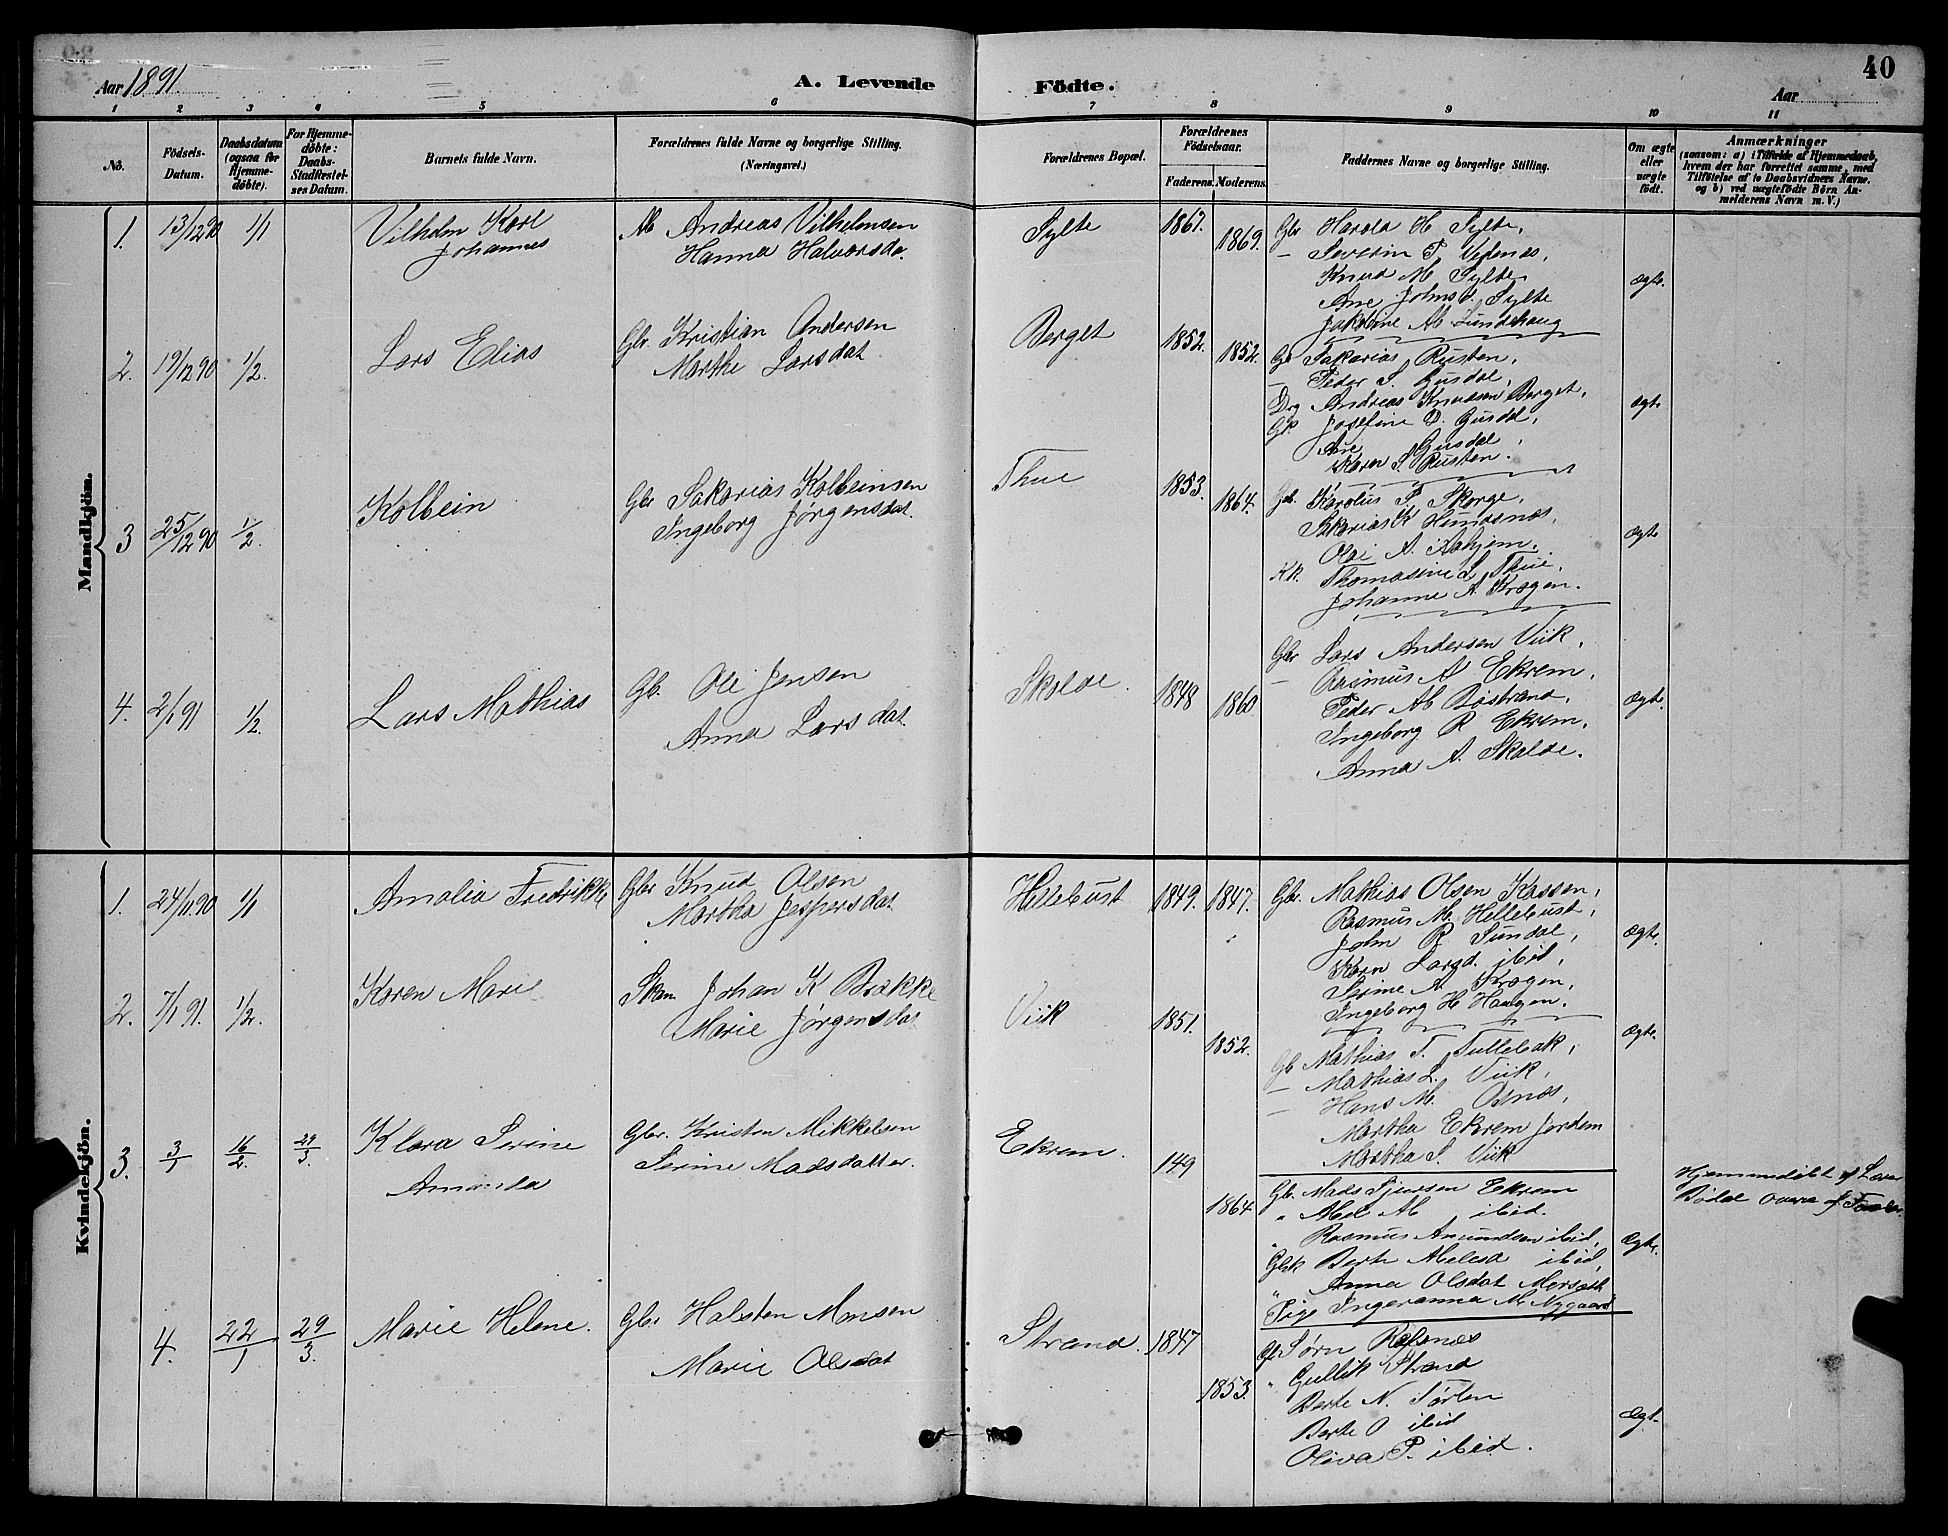 Aar 1891.
A. Levende
Födte.
40
Aar
1 2 3 4 5 6 7 8 9 10 11
No.
Födsels-
Datum.
Daabsdatum
(ogsaa for
Hjemme-
döbte).
For Hjemme-
döbte:
Daabs-
Stadfestel-
ses Datum.
Barnets fulde Navn.
Forældrenes fulde Navne og borgerlige Stilling.
(Næringsvei.)
Forældrenes Bopæl.
Forældrenes
Födselsaar.
Faderens. Moderens.
Faddernes Navne og borgerlige Stilling.
Om ægte
eller
uægte
födt.
Anmærkninger
(saasom: a) i Tilfælde af Hjemmedaab,
hvem der har forrettet samme, med
Tilföielse af to Daabsvidners Navne,
og b) ved uægtefödte Börn An-
melderens Navn m. V.)
Mandkjön.
1. 13/12 90 1/1 Vilhelm Karl
Johannes
Andreas Vilhelmsen
Hanna Halvorsda.
Sylte 1867. 1869.
Gbr Harald H Sylte,
— Severin T.
Knud M. Sylte,
Ane Johnsd. Sylte
Jakobine M. Lundehaug
ægte.
2. 19/12 90 1/2. Lars Elias
Gbr. Kristian Andersen
Marthe Larsdat.
Berget 1852. 1852.
Gb Sakarias Rusten,
— Peder S. Gusdal,
Drg Andreas Knudsen Berget,
Gk Josefine D. Gusdal,
Ane Gusdal,
Karn S. Rusten.
ægte
3 25/12 90 1/2. Kolbein
Gbr Sakarias Kolbeinsen
Ingeborg Jørgensdat.
Thue 1853. 1864.
Gb. Karolus P. Skorge,
Sakarias K Hundsnæs,
Ole A. Aahjem,
KK. Thomasine L. Thue,
Johanne A. Krogen.
ægte
4. 2/1 91 1/2. Lars Mathias
Gb. Ole Jensen
Anna Larsdat.
Skolde. 1848 1860.
Gbr Lars Andersen Viik,
— Rasmus A Ekrem,
Peder M. Bøstrand,
Ingeborg R Ekrem,
Anna A. Skolde.
ægte.
Kvindekjön.
1. 24/11 90 1/1 Amalia Fredrikke
Gbr Knud Olsen
Martha Jespersdat.
Hellebust 1849. 1847.
Gbr. Mathias Olsen Kassen,
Rasmus M. Hellebust,
John R Sundal,
Karn Larsd. ibid,
Serine A Krogen,
Ingeborg H Haugen.
ægte.
2. 7/1 91. 1/2. Karen Marie
Skom. Johan K Brække
Marie Jørgensdat
Viik 1851. 1852.
Gb Mathias T. Tullebak,
— Mathias L. Viik,
— Hans M. Osnæs,
Martha Ekrem Jordem
Martha S. Viik
ægte.
3. 3/1 16/2. 29/3 Klara Serine
Amanda
Gbr. Kristen Mikkelsen
Serine Madsdatter.
Ekrem. 149 1864
Gb. Mads Sjursen Ekrem
" Abel M ibid.
" Rasmus Amundsen ibid,
Gbk Berte Abelsd ibid,
" Anna Olsdat
Pige Ingeranna M. Nygaard
Ægte.
Hjemmedøbt af Lærer
Bødal
4. 22/1 29/3. Marie Helene.
Gbr Halsten Monsen
Marie Olsdat
Strand. 1847 1853.
Gb Sørn
" Gullik Strand
Berte N.
Berte O ibid
Oliva P. ibid.
Ægt.